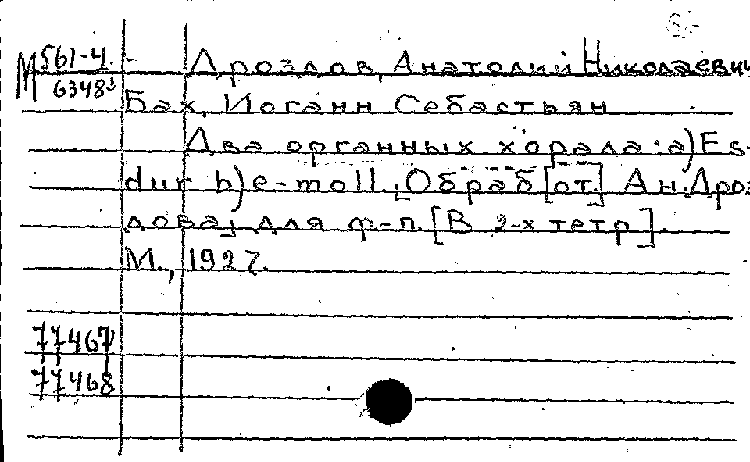 М 561-4
63483
Дроздов, Анатолий Николаевич
Бах, Иоганн Себастьян
Два органных хорала: а) Es-
dur b) e-moll, [Обраб [от] Ан. Дроз-
дова] для ф-п. [В 2-х тетр].
М., 1927.
77467
77468